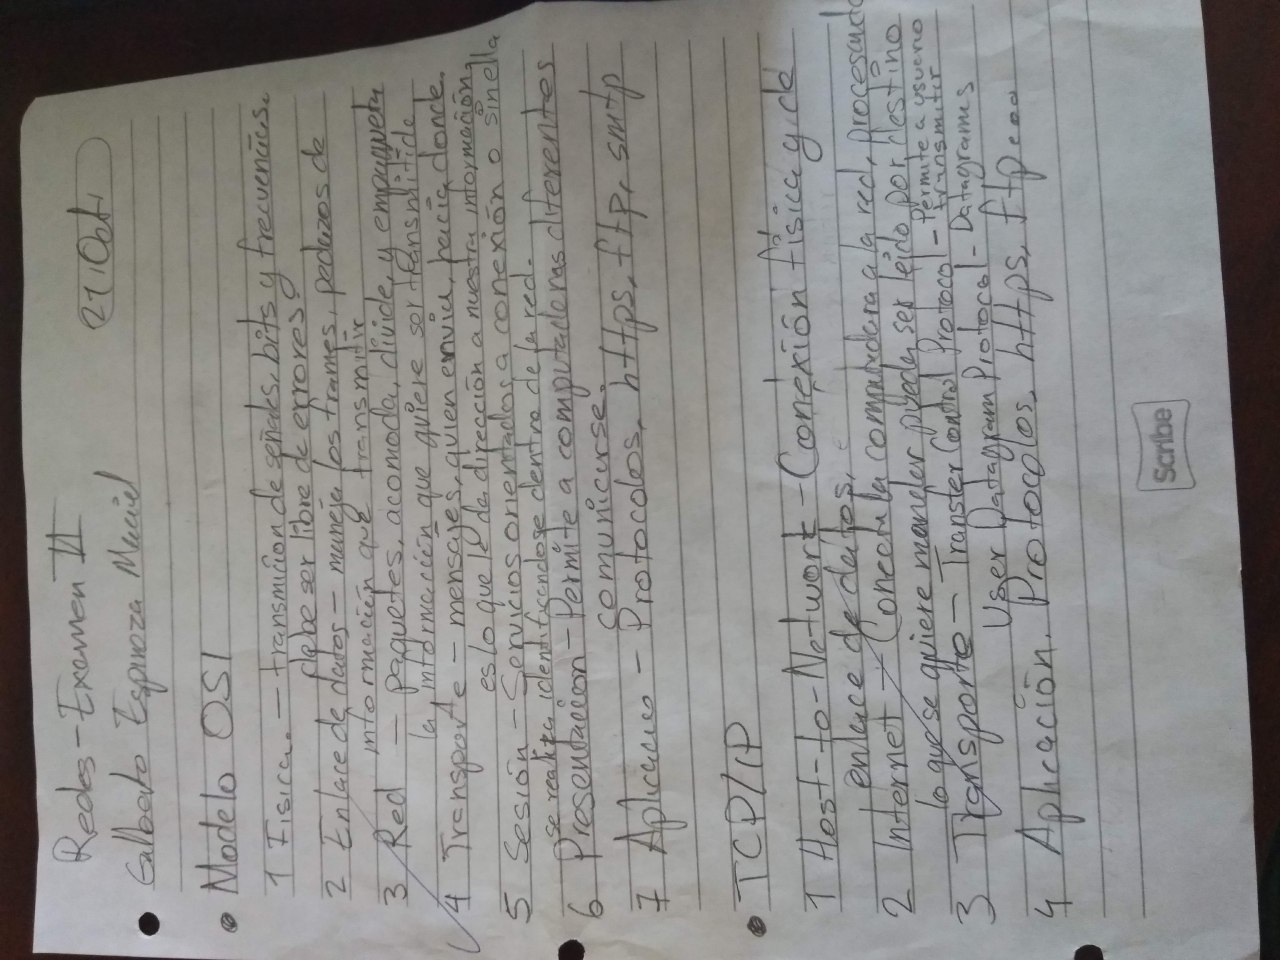 Redes - Examen II
21 Oct
Gilberto Espinoza Maciel
Modelo OSI
1 Fisica. - transmicion de señales, bits y frecuencias.
debe ser libre de errores.
2 Enlace de datos - maneja los frames, pedazos de
información que transmitir
3 Red - paquetes, acomoda, divide, y empaqueta
la información que quiere ser transmitida
4 Transporte - mensajes, quien envia, hacia donde.
es lo que le da dirección a nuestra información,
5 Sesión - Servicios orientados a conexión o sin ella
se realiza identificandose dentro de la red.
6 Presentacion - Permite a computadoras diferentes
comunicarse.
7 Aplicacion - Protocolos, https, ftp, smtp
TCP/IP
1 Host-to-Network - Conexión física y de
enlace de datos,
2 Internet - Conecta la computadora a la red, procesando
lo que se quiere mandar pueda ser leido por destino
3 Transporte - Transfer Control Protocol - Permite a usuario
transmitir
User Datagram Protocol - Datagrames
4 Aplicación. Protocolos, https, ftp...
Scribe